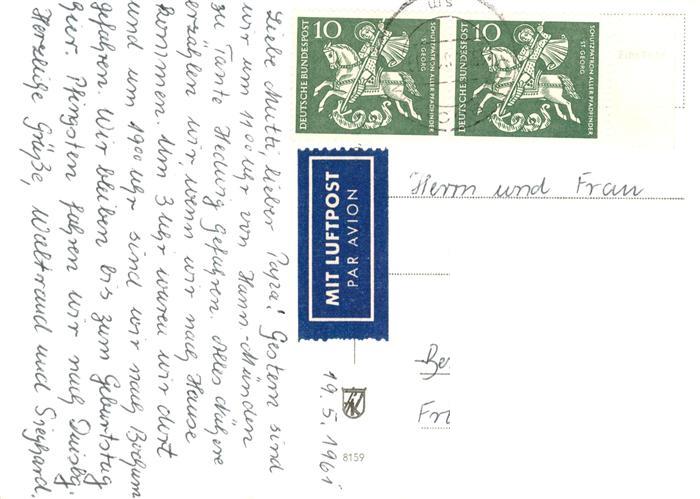 Liebe Mutti, lieber Papa! Gestern sind
wir um 1100 Uhr von Hann.-Münden
zu Tante Hedwig gefahren. Alles Nähere
erzählen wir wenn wir nach Hause
kommen. Um 3 Uhr waren wir dort
und um 190 Uhr sind wir nach Bochum
gefahren. Wir bleiben bis zum Geburtstag
hier. Pfingsten fahren wir nach Duisbg.
Herzliche Grüße, Waltraud und Sieghard.
19.5.1961
10
DEUTSCHE BUNDESPOST
SCHUTZPATRON ALLER PFADFINDER
ST. GEORG
10
DEUTSCHE BUNDESPOST
SCHUTZPATRON ALLER PFADFINDER
ST. GEORG
MIT LUFTPOST
PAR AVION
Herrn und Frau
Be
Fr
8159